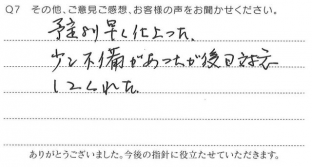 Q7 その他、ご意見ご感想、お客様の声をお聞かせください。
予定より早く仕上った。
少し不備があったが後日対応
してくれた。
ありがとうございました。今後の指針に役立たせていただきます。